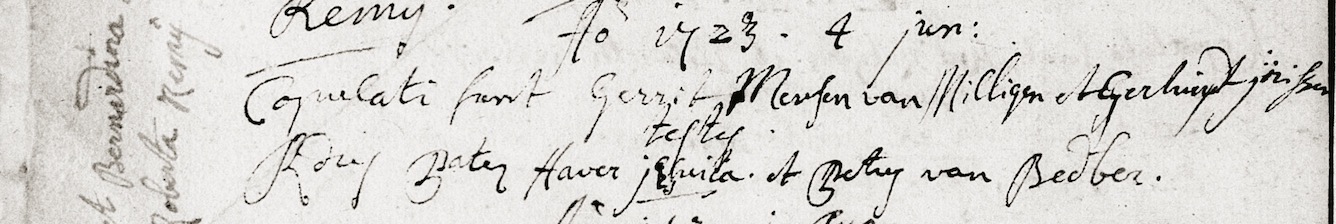 Remij.
Aõ 1723. 4 jun:
Copulati sunt Gerrit Mensen van Milligen et Gerhuijt jorissen
testes
Rdus Pater Haver jesuita. et Peter van Bedber.
et Bernardina
Roberta Remij